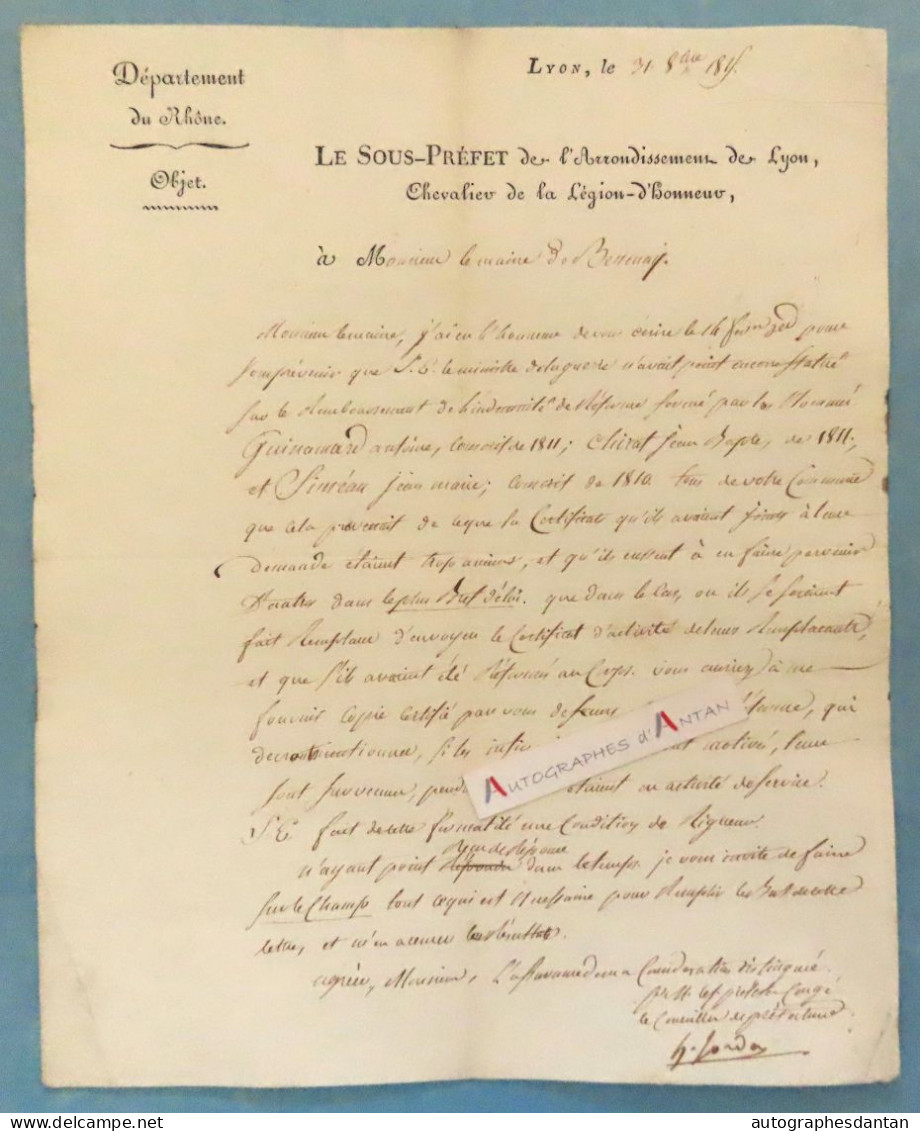 Département
du Rhône.
Objet.
Lyon, le 31 8bre 181
LE SOUS-PRÉFET de l'Arrondissement de Lyon,
Chevalier de la Légion-d'Honneur,
à Monsieur le maire de Bessenay.
Monsieur le maire, j'ai eu l'honneur de vous écrire le 14 pour
prévenir que S. E. le ministre de la guerre n'avait point encore statué
sur le Remboursement de l'indemnité de Réforme formé par les Nommé
Guinamard antoine, Conscrit de 1811; Chirat jean Bapte, de 1811,
et Siméan jean marie; Conscrit de 1810. tous de votre Commune
que cela provenait de ce que les Certificats qu'ils avaient joints à leur
demande étaient trop anciens, et qu'ils eussent à en faire parvenir
d'autres dans le plus Bref délai. que dans le Cas, où ils se seraient
fait Remplacer d'envoyer le Certificat d'activité de leurs Remplacants,
et que s'ils avaient été Réformés au Corps. vous auriez à me
fournir Copie Certifié par vous de leurs Réforme, qui
devront mentionner, si les activé, leur
sont survenus, étaient en activité de Service.
S. E. fait de cette formalité une Condition de Rigueur.
n'ayant point Reçu de Réponse dans le temps, je vous invite de faire
sur le Champ tout ce qui est Nécessaire pour Remplir le But de cette
lettre, et m'en accuser le Résultat.
agréez, Monsieur, L'assurance de ma Considération distinguée.
pr Mr le s. préfet en Congé
le Conseiller de préfecture
AUTOGRAPHES d'ANTAN
autographesdantan